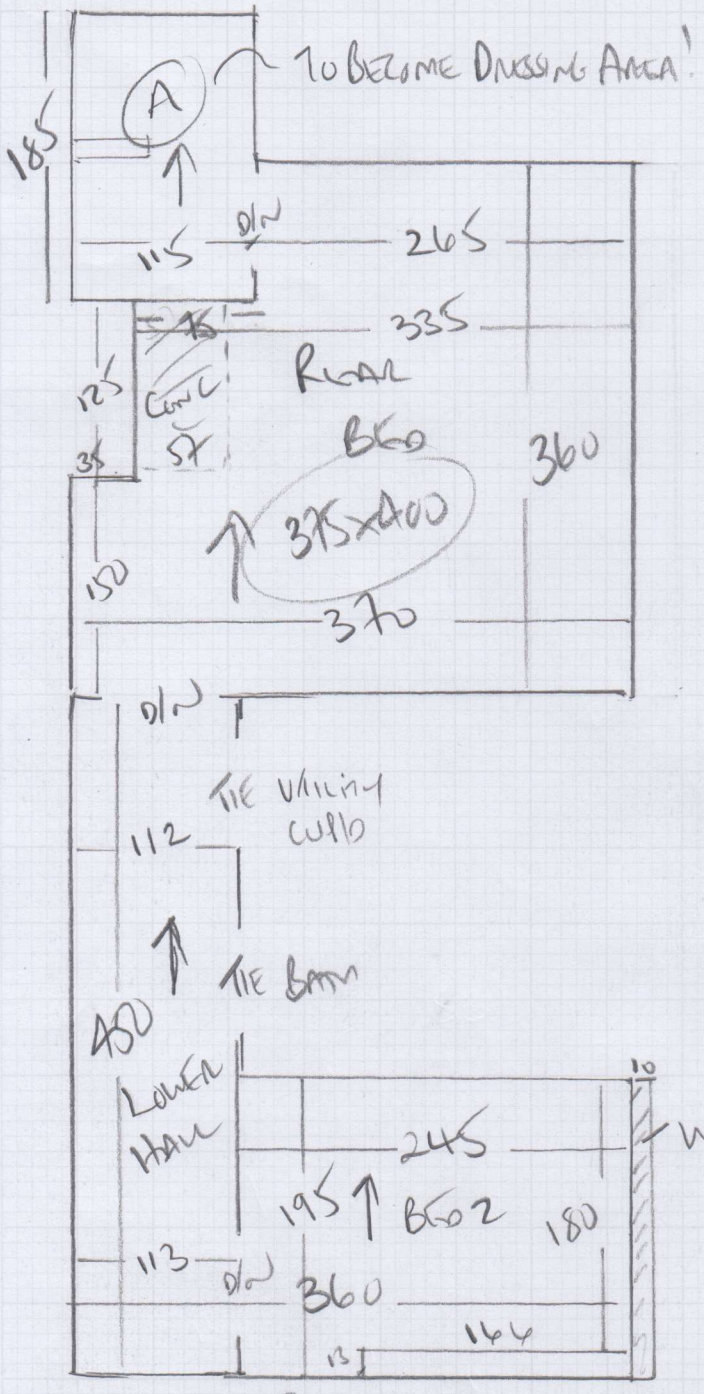 A
TO BECOME DRESSING AREA!
185
D/N
115
265
75
335
125
CONC
57
REAR
BED
35
360
375x400
150
370
D/N
TIE UTILITY
CUPD
112
TIE BATH
450
LOWER
HALL
10
245
195
BED 2
180
113
D/N
360
13